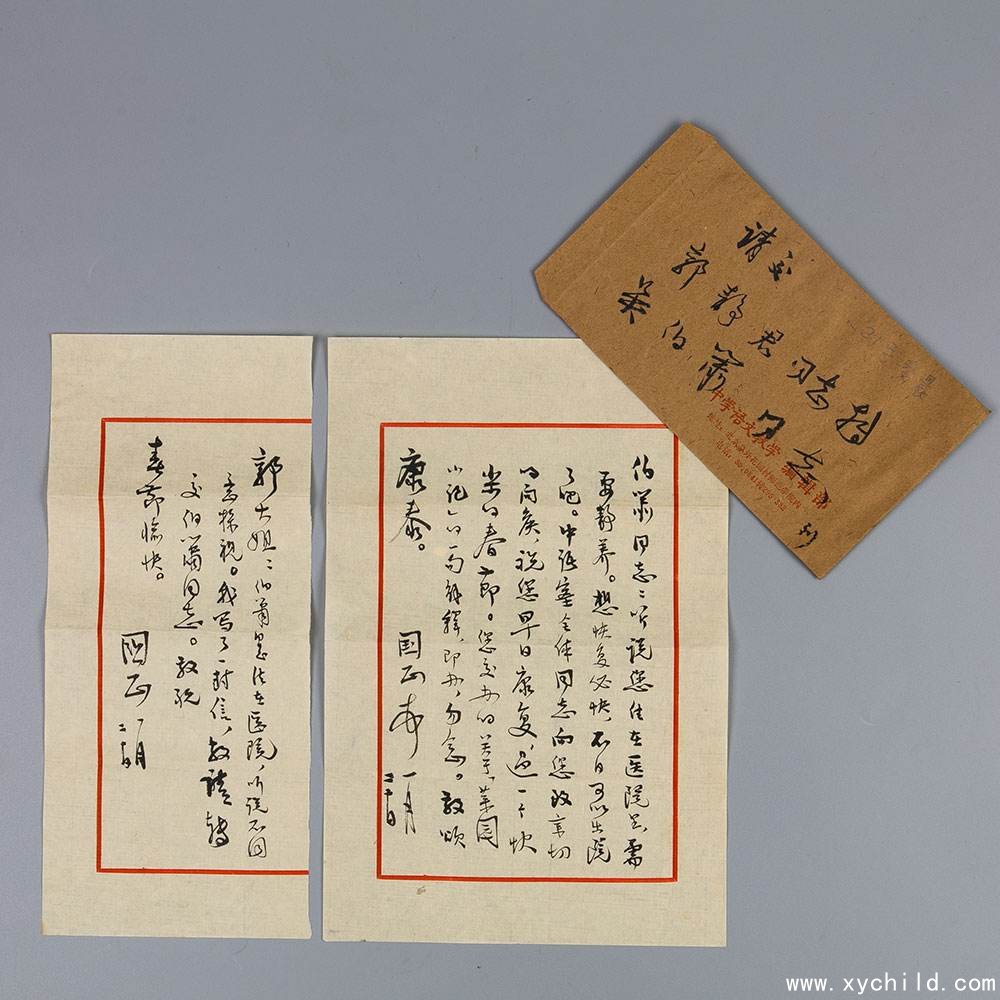 请交
郭静君同志转
吴伯箫同志
刘
中学语文教学 编辑部
伯箫同志：听说您住在医院里，需
要静养。想恢复必快，不日可以出院
了吧。中语室全体同志向您致亲切
的问侯，祝您早日康复，过一个快
乐的春节。您交办的关于《菜园
小记》的一句解释，即办，勿念。敬颂
康泰。
国正 一月
二十日
郭大姐：伯箫是住在医院，听说不同
意探视。我写了一封信，敬请转
交伯箫同志。敬祝
春节愉快。
国正 一月
二十日
www.xychild.com